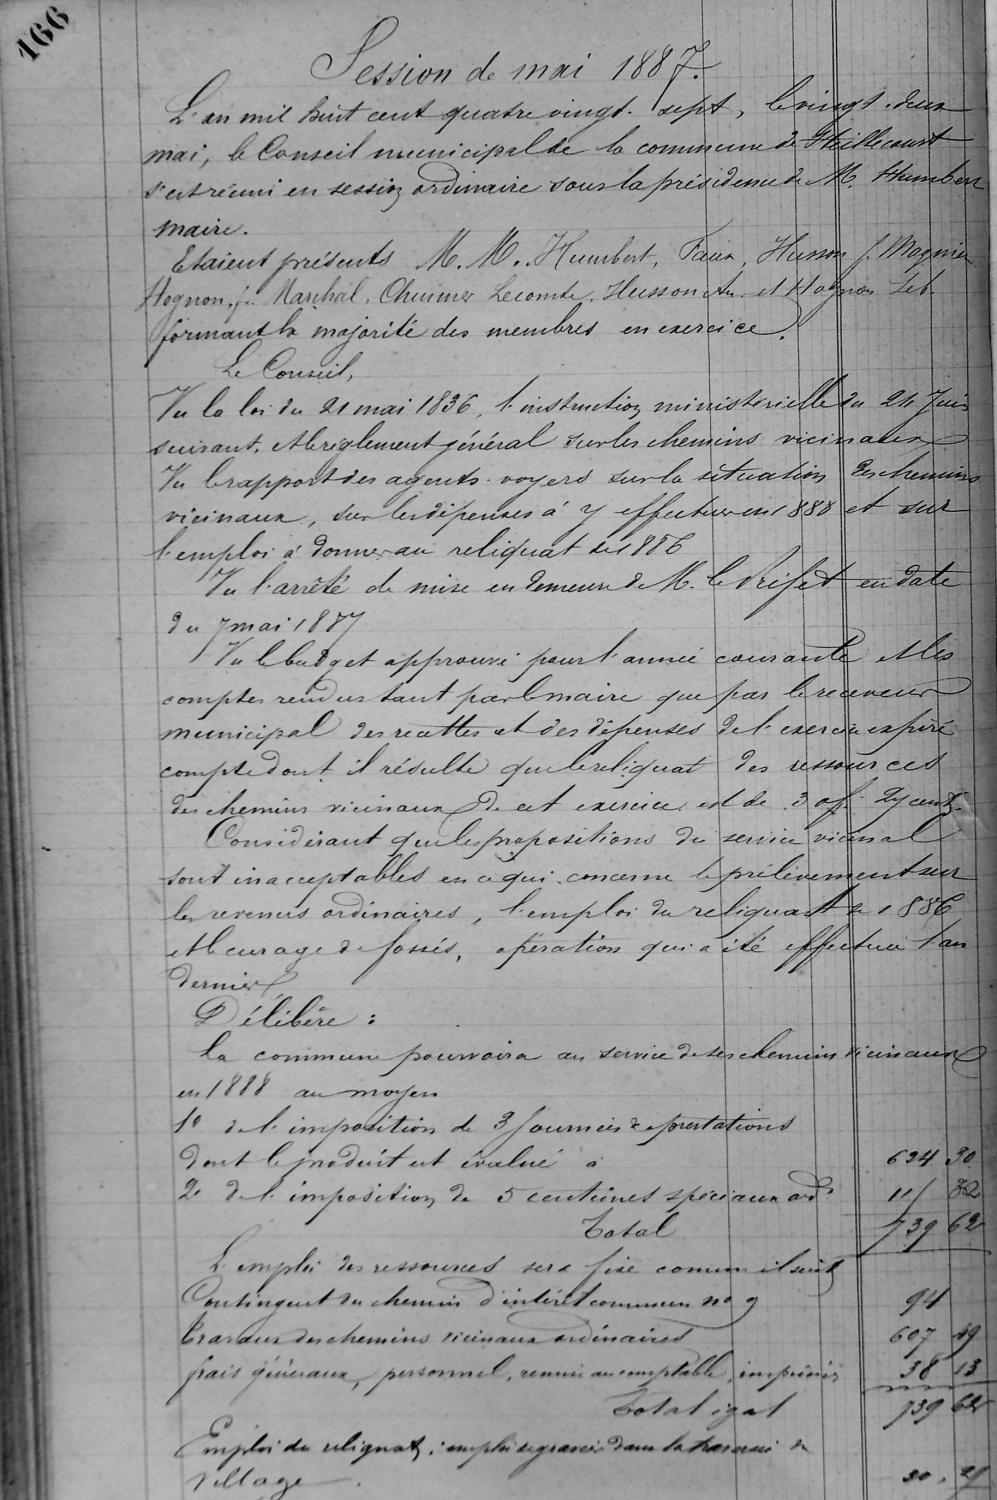 166
Session de mai 1887.
L'an mil huit cent quatre vingt-sept, le vingt-deux
mai, le Conseil municipal de la commune de
s'est réuni en session ordinaire sous la présidence de M. Humbert
maire.
Etaient présents M.M. Humbert, Faux, Husson j. Magnier
Hognon, j. Marchal, Lecomte, Husson et Hognon
formant la majorité des membres en exercice.
Le Conseil,
Vu la loi du 21 mai 1836, l'instruction ministérielle du 24 Juin
suivant, et le règlement général sur les chemins vicinaux
Vu le rapport des agents-voyers sur la situation des chemins
vicinaux, sur les dépenses à y effectuer en 1888 et sur
l'emploi à donner au reliquat de 1886
Vu l'arrêté de mise en demeure de M. le Préfet en date
du 7 mai 1887
Vu le budget approuvé pour l'année courante et les
comptes rendus tant par le maire que par le receveur
municipal des recettes et des dépenses de l'exercice expiré
compte dont il résulte que le reliquat des ressources
des chemins vicinaux de cet exercice est de 30f. 27 cent.
Considérant que les propositions du service vicinal
sont inacceptables en ce qui concerne le prélèvement sur
les revenus ordinaires, l'emploi du reliquat de 1886
et le curage de fossés, opération qui a été effectuée l'an
dernier
Délibère :
La commune pourvoira au service de ses chemins vicinaux
en 1888 au moyen
1° de l'imposition de 3 Journées de prestations
dont le produit est évalué à 624 30
2° de l'imposition de 5 centimes spéciaux ord.s 11/
Total 739 62
L'emploi des ressources sera fixé comme il suit
Contingent du chemin d'intérêt commun no 9 94
Travaux des chemins vicinaux ordinaires 607 49
frais généraux, personnel, remise au comptable, imprimés 38 13
Total égal 739 62
Emploi du reliquat : emploi de gravier dans la traverse du
village. 30. 27